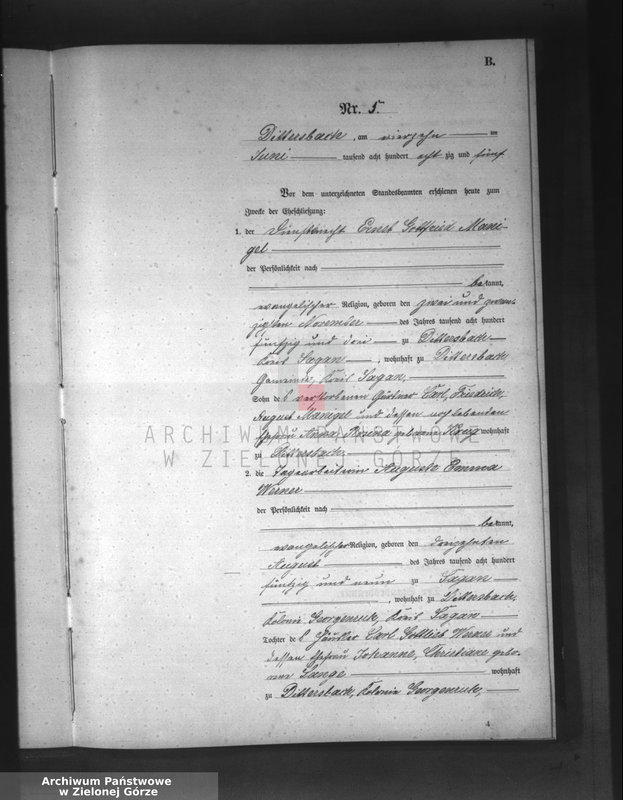 B.
Nr. 5.
Dittersbach, am vierzehn ten
Juni tausend acht hundert acht zig und fünf.
Vor dem unterzeichneten Standesbeamten erschienen heute zum
Zwecke der Eheschließung:
1. der Dienstknecht Ernst Gottfried Mani-
gel
der Persönlichkeit nach
bekannt,
evangelischer Religion, geboren den zwei und zwan-
zigsten November des Jahres tausend acht hundert
fünfzig und drei zu Dittersbach
Kreis Sagan, wohnhaft zu Dittersbach
Gemeinde, Kreis Sagan,
Sohn des verstorbenen Gärtner Carl, Friedrich,
August Manigel und dessen noch lebenden
Ehefrau Anna Rosina geborene wohnhaft
zu Dittersbach.
2. die Tagearbeiterin Auguste Emma
Werner
der Persönlichkeit nach
bekannt,
evangelischer Religion, geboren den dreizehnten
August des Jahres tausend acht hundert
fünfzig und neun zu Sagan
, wohnhaft zu Dittersbach,
Kolonie Georgenruh, Kreis Sagan
Tochter des Häusler Carl Gottlieb Werner und
dessen Ehefrau Johanne, Christiane gebo-
rene Lange wohnhaft
zu Dittersbach, Kolonie Georgenruh,
4
ARCHIWUM PAŃSTWOWE
W ZIELONEJ GÓRZE
Archiwum Państwowe
w Zielonej Górze